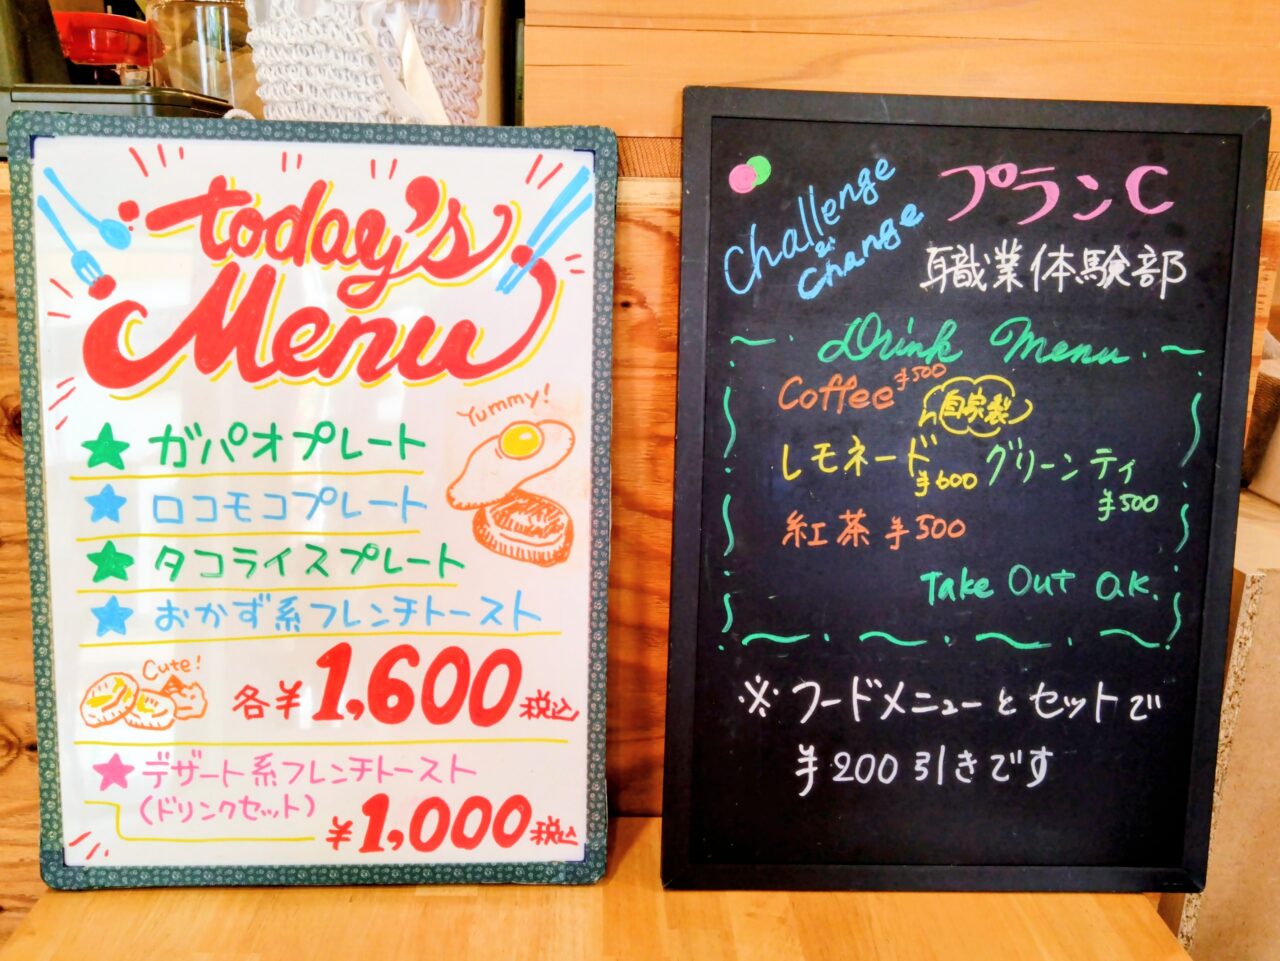 today's
Menu
Yummy!
★ガパオプレート
★ロコモコプレート
★タコライスプレート
★おかず系フレンチトースト
Cute!
各¥1,600税込
★デザート系フレンチトースト
(ドリンクセット)
¥1,000税込
Challenge
&
Change
プランC
職業体験部
Drink Menu
Coffee ¥500
自家製
レモネード ¥600
グリーンティ
¥500
紅茶 ¥500
Take Out OK.
※フードメニューとセットで
¥200引きです